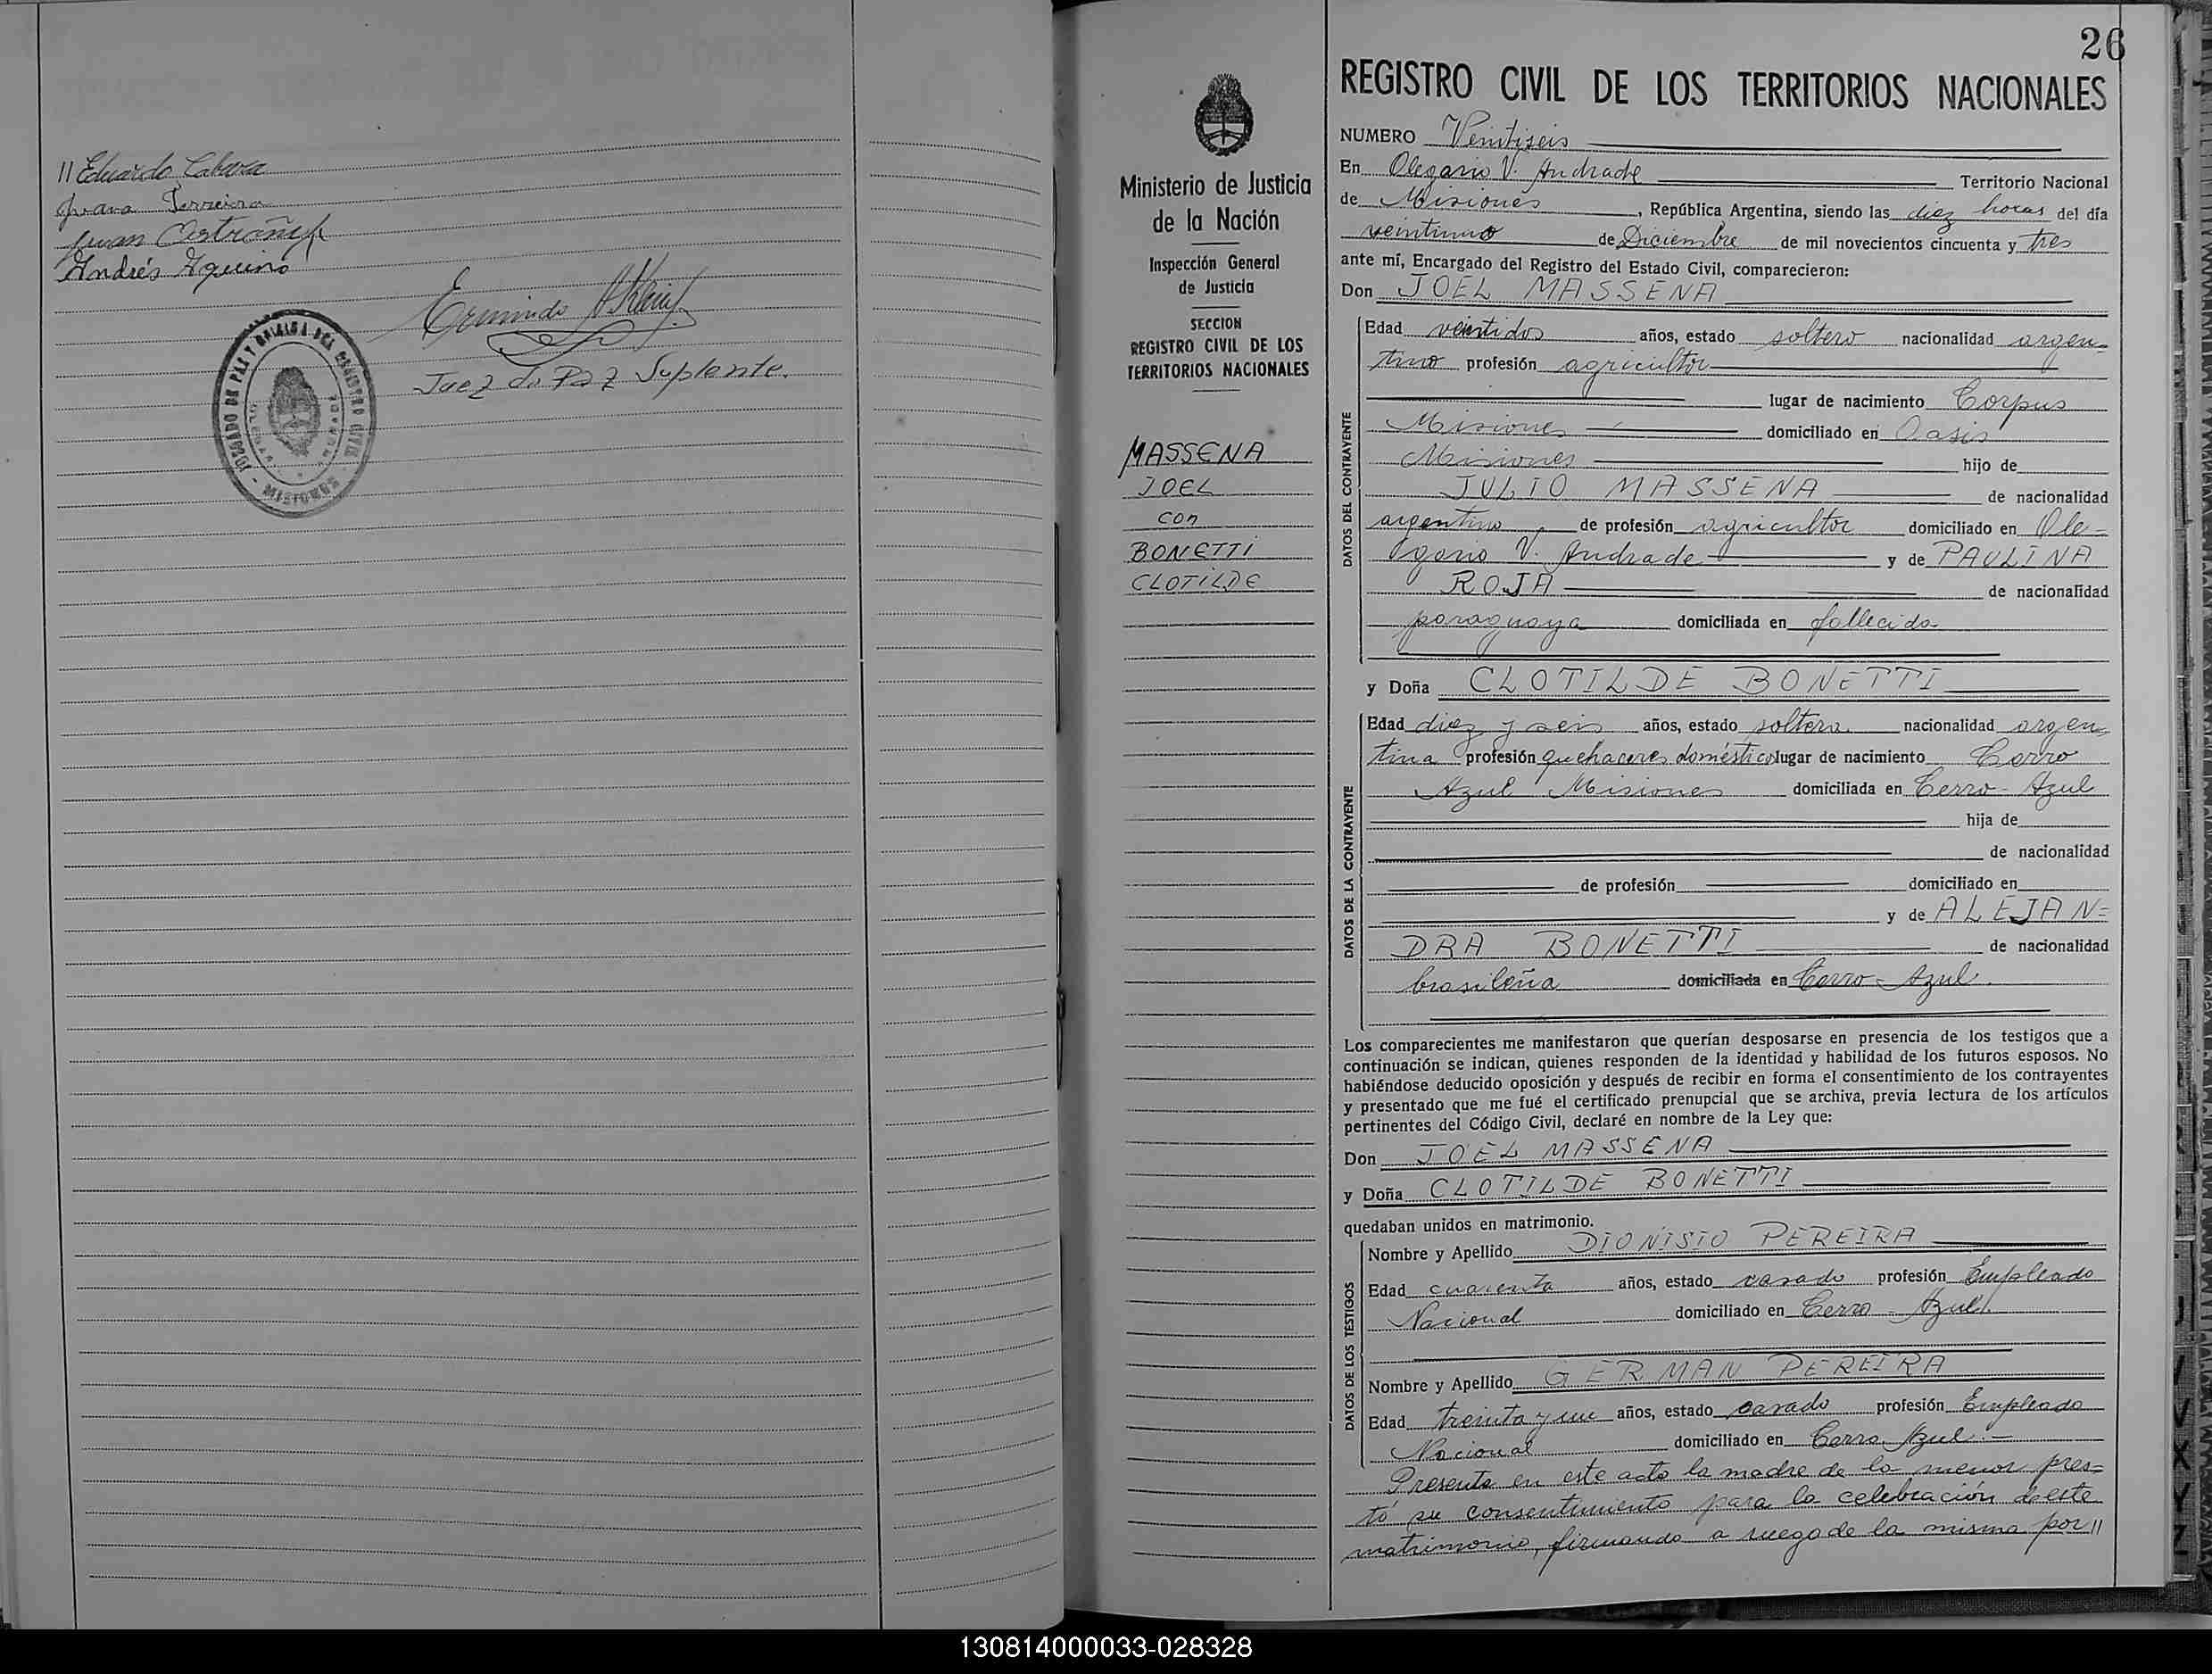 11 Eduardo Cabrera
Juana Ferreira
Juan
Andrés Aquino
Ermindo
Juez de Paz Suplente.
JUZGADO DE PAZ Y DEL REGISTRO CIVIL
- MISIONES -
26
REGISTRO CIVIL DE LOS TERRITORIOS NACIONALES
Ministerio de Justicia
de la Nación
Inspección General
de Justicia
SECCION
REGISTRO CIVIL DE LOS
TERRITORIOS NACIONALES
MASSENA
JOEL
con
BONETTI
CLOTILDE
NUMERO Veintiseis
En Olegario V. Andrade Territorio Nacional
de Misiones, República Argentina, siendo las diez horas del día
veintiuno de Diciembre de mil novecientos cincuenta y tres
ante mí, Encargado del Registro del Estado Civil, comparecieron:
Don JOEL MASSENA
DATOS DEL CONTRAYENTE
Edad veintidos años, estado soltero nacionalidad argen-
tino profesión agricultor
lugar de nacimiento Corpus
Misiones domiciliado en Oasis
Misiones hijo de
JULIO MASSENA de nacionalidad
argentino de profesión agricultor domiciliado en Ole-
gario V. Andrade y de PAULINA
ROJA de nacionalidad
paraguaya domiciliada en fallecida
y Doña CLOTILDE BONETTI
DATOS DE LA CONTRAYENTE
Edad diez y seis años, estado soltera nacionalidad argen-
tina profesión quehaceres domésticos lugar de nacimiento Cerro
Azul Misiones domiciliada en Cerro-Azul
hija de
de nacionalidad
de profesión domiciliado en
y de ALEJAN=
DRA BONETTI de nacionalidad
brasileña domiciliada en Cerro-Azul.
Los comparecientes me manifestaron que querían desposarse en presencia de los testigos que a
continuación se indican, quienes responden de la identidad y habilidad de los futuros esposos. No
habiéndose deducido oposición y después de recibir en forma el consentimiento de los contrayentes
y presentado que me fué el certificado prenupcial que se archiva, previa lectura de los artículos
pertinentes del Código Civil, declaré en nombre de la Ley que:
Don JOEL MASSENA
y Doña CLOTILDE BONETTI
quedaban unidos en matrimonio.
DATOS DE LOS TESTIGOS
Nombre y Apellido DIONISIO PEREIRA
Edad cuarenta años, estado casado profesión Empleado
Nacional domiciliado en Cerro-Azul.
Nombre y Apellido GERMAN PEREIRA
Edad treinta y un años, estado casado profesión Empleado
Nacional domiciliado en Cerro Azul.-
Presente en este acto la madre de la menor pres=
tó su consentimiento para la celebración de este
matrimonio, firmando a ruego de la misma por 11
130814000033-028328